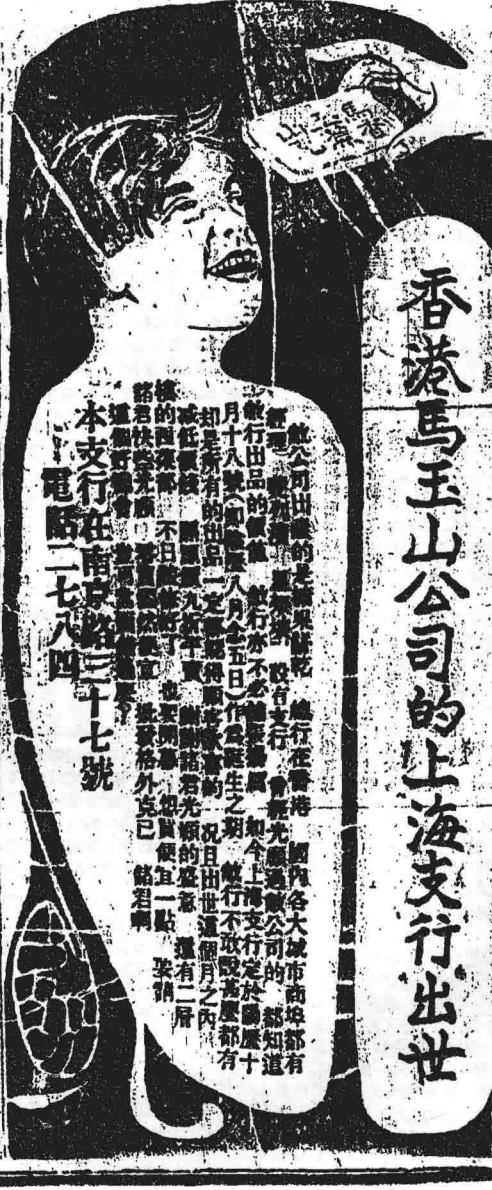 香港馬玉山公司的上海支行出世
敝公司出產的是糖果餅乾 總行在香港 國內各大城市商埠都有
經理 設有支行 曾經光顧過敝公司的 都知道
敝行出品的價值 敝行亦不必 如今上海支行定於國歷十
月十八號(即舊歷八月廿五日)作爲誕生之期 敝行不敢說甚麼都有
却是所有的出品一定 能得顧客歡喜的 况且出世這個月之內
減低價錢 照原價九折平賣 酬謝諸君光顧的盛意 還有二層
樓的西菜部 不日裝修好了 也要開幕 但買便宜一點 裝飾
諸君快些光顧 零買固然便宜 批發格外克己 諸君啊
這個好機會
本支行在南京路三十七號
電話二七八四